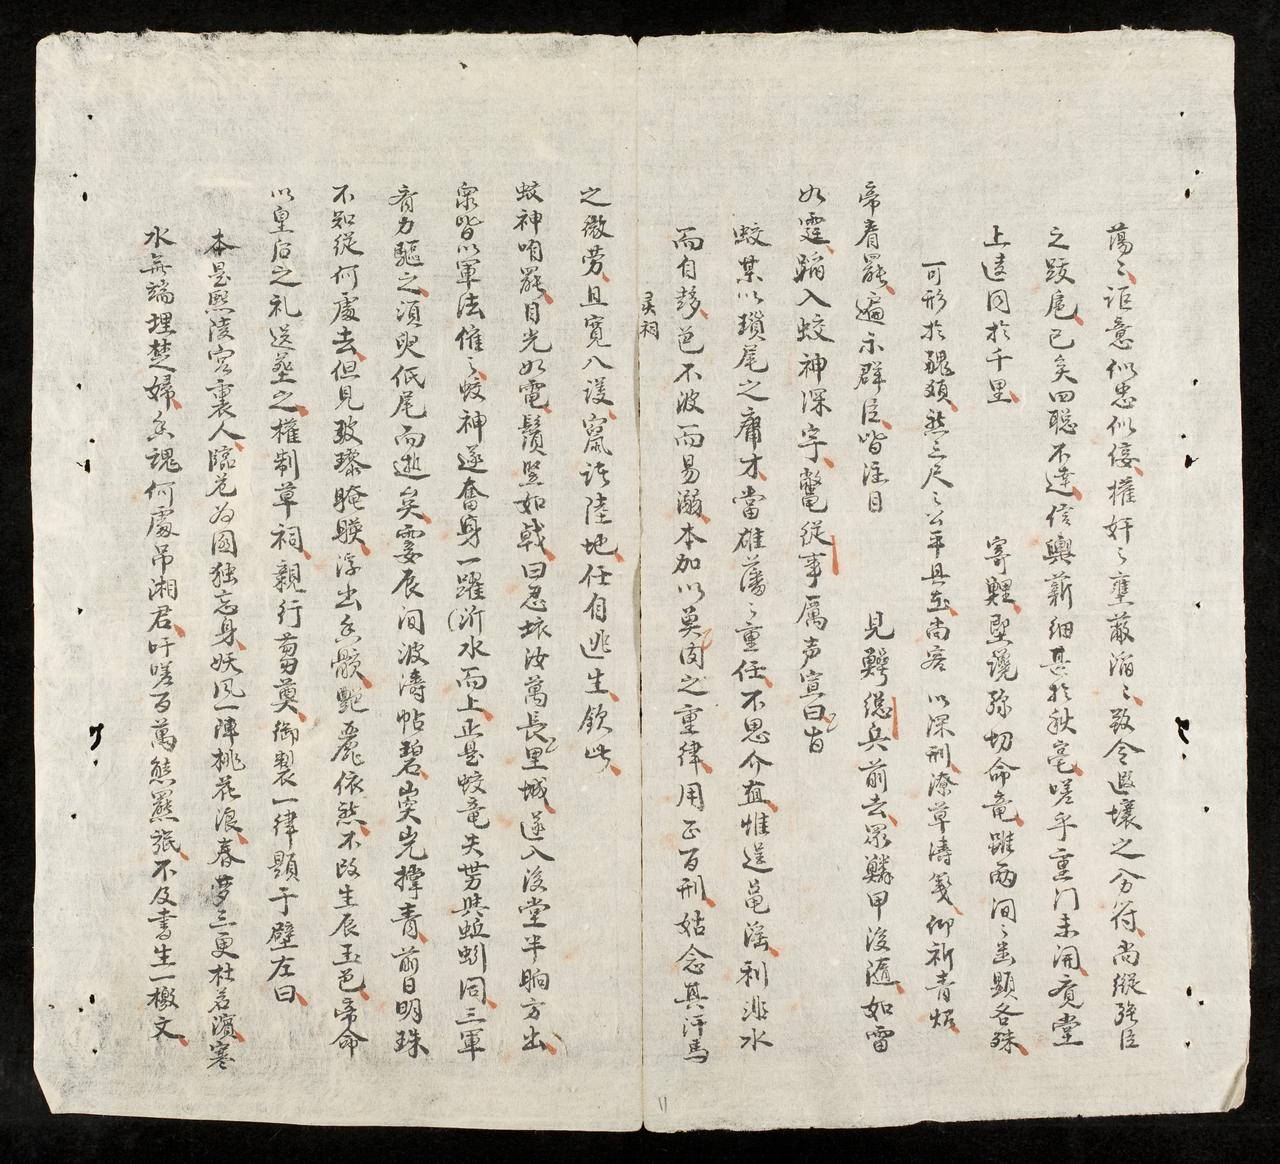 蕩〻詎意似忠似佞權奸〻壅蔽滔〻致令遐壤之分符尚縱強臣
之跋扈已矣四聰不達信輿薪細甚於秋毫嗟乎重门未開負堂
上遠同於千里　　　寄鯉堅讒弥切命竜雖兩间〻幽顯各殊
可形於醜類然三尺〻公平具在尚容　以深刑潦草濤箋仰祈青炤
帝看罷遍示群臣皆注目　　　見鰐總兵前去眾鱗甲後隨如雷
如霆蹈入蛟神深宇鼈從事厲声宣曰旨
蛟某以瑣尾之庸才當雄藩〻重任不思介直惟逞邑滛利非水
而自移色不波而易溺本加以莫囡之重律用正百刑姑念其汗馬
灵祠
之微劳且寛八议竄諸陸地任自逃生欽此
蛟神咱罷目光如電鬚竪如戟曰忍坏汝萬長里城遂入後堂半晌方出
衆皆以軍法催〻蛟神遂奮身一躍(沂水而上正是蛟竜失势共蚯蚓同三軍
有力驅之須臾低尾而逝矣霎辰间波濤帖碧山突屼撑青前日明珠
不知從何處去但見玻瓈瞹暎浮出香骸艷麗依然不改生辰玉色帝命
以皇后之礼送𦵏之權制草祠親行蒭奠御製一律題于壁左曰
本是熙陵宮裏人臨危為國独忘身妖风一陣桃花浪春夢三更杜若濱寒
水無端埋楚婦香魂何處吊湘君吁嗟百萬熊羆旅不及書生一檄文